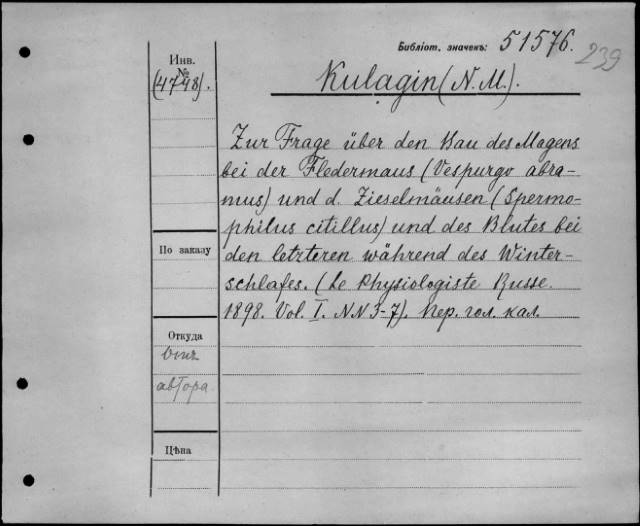 Библіот. значекъ: 51576.
239
Инв.
№
(4748).
Kulagin (N. M.).
Zur Frage über den Bau des Magens
bei der Fledermaus (Vespurgo abra-
mus) und d. Zieselmäusen (Spermo-
philus citillus) und des Blutes bei
den letzteren während des Winter-
schlafes. (Le Physiologiste Russe.
1898. Vol. I. NN 3-7). Пер. гол. кал.
По заказу
Откуда
Отъ
автора
Цѣна